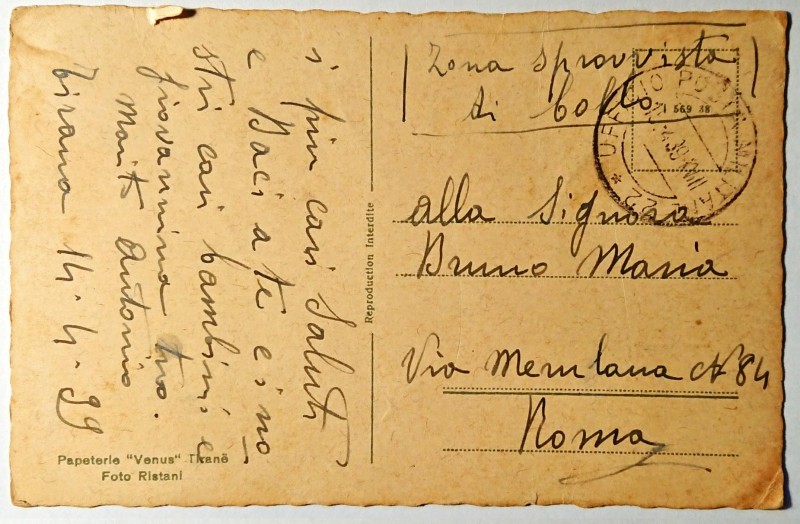 i più cari Saluti
e Baci a te e i no
stri cari bambini e
Giovannina tuo.
Marito Antonio
Tirana 14-4-39
Papeterie "Venus" Tiranë
Foto Ristani
Reproduction Interdite
Zona sprovvista
di bollo
569 38
UFFICIO POSTA MILITARE 22
4.39 XVII
alla Signora
Bruno Maria
Via Merulana N 84
Roma